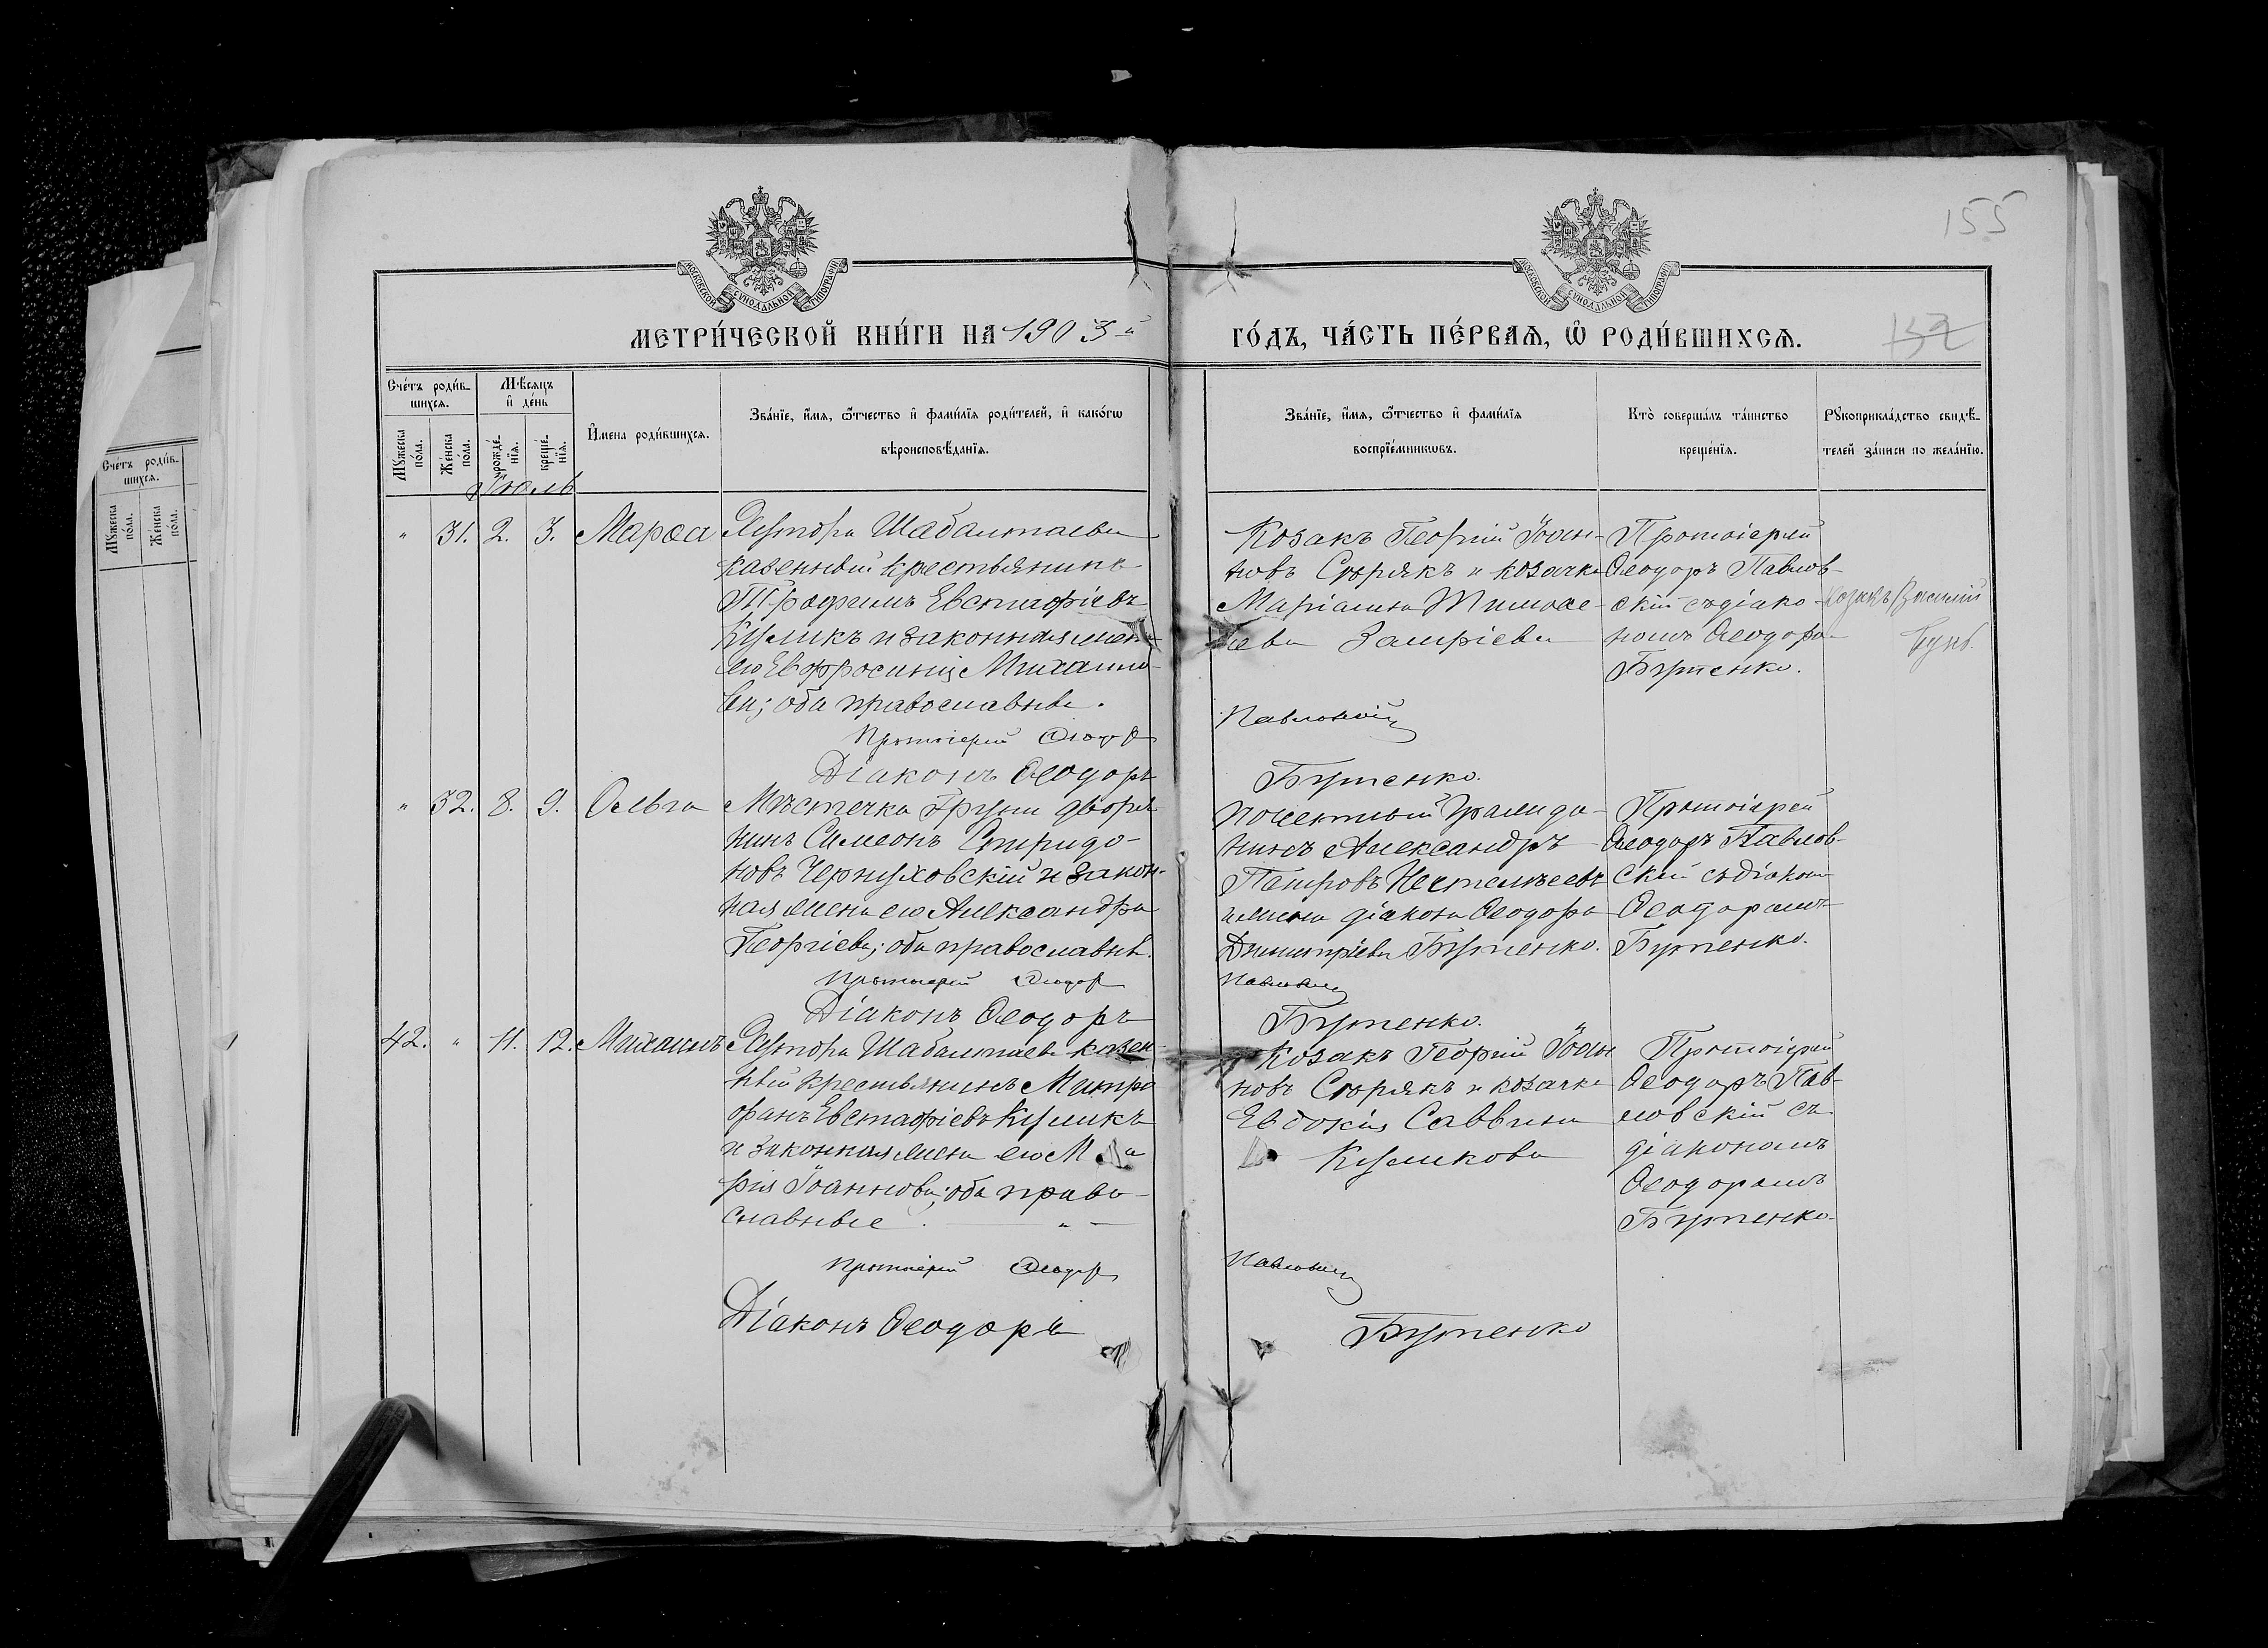 155
МОСКОВСКОЙ СУНОДАЛЬНОЙ ТИПОГРАФІИ
МОСКОВСКОЙ СУНОДАЛЬНОЙ ТИПОГРАФІИ
МЕТРИ́ЧЕСКОЙ КНИ́ГИ НА 1903-й
ГО́ДЪ, ЧА́СТЬ ПЕ́РВАѦ, Ѿ РОДИ́ВШИХСѦ.
132
Сче́тъ роди́в-
шихсѧ.
Мѣ́сѧцъ
и҆ де́нь
Мꙋ́жеска
по́ла.
Же́нска
по́ла.
рожде́-
нїѧ.
креще́-
нїѧ.
И҆мена роди́вшихсѧ.
Зва́нїе, и҆́мѧ, ѻ҆́тчество и҆ фами́лїѧ роди́телей, и҆ како́гѡ
вѣроисповѣ́данїѧ.
Зва́нїе, и҆́мѧ, ѻ҆́тчество и҆ фами́лїѧ
воспрїе́мникѡвъ.
Кто̀ соверша́лъ та́инство
креще́нїѧ.
Рꙋкоприкла́дство свидѣ́-
телей за́писи по жела́нїю.
Сче́тъ роди́в-
шихсѧ.
Мꙋ́жеска
по́ла.
Же́нска
по́ла.
Іюль
" 31. 2. 3. Марѳа
Хутора Шабалтаева
казенный крестьянинъ
Трофимъ Евстафіевъ
Куликъ и законная жена
его Евфросинія Михаило-
ва; оба православные.
Протоіерей Ѳеодоръ
Діаконъ Ѳеодоръ
Козакъ Георгій Іоан-
новъ Сюрякъ и козачка
Маріамна Тимоѳе-
ева
Павловскій
Бутенко.
Протоіерей
Ѳеодоръ Павлов-
скій съ діако-
номъ Ѳеодоромъ
Бутенко.
Козакъ Василій
" 32. 8. 9. Ольга
Мѣстечка Груни дворя-
нинъ Симеонъ Спиридо-
новъ Чернуховскій и закон-
ная жена его Александра
Георгіева; оба православные.
Протоіерей Ѳеодоръ
Діаконъ Ѳеодоръ
Почетный Гражда-
нинъ Александръ
Петровъ
и жена діакона Ѳеодора
Димитріева Бутенко.
Павловскій
Бутенко.
Протоіерей
Ѳеодоръ Павлов-
скій съ діакономъ
Ѳеодоромъ
Бутенко.
42. " 11. 12. Михаилъ
Хутора Шабалтаева казен-
ный крестьянинъ Митро-
фанъ Евстафіевъ Куликъ
и законная жена его Ма-
рія Іоаннова; оба право-
славные. " —
Протоіерей Ѳеодоръ
Діаконъ Ѳеодоръ
Козакъ Георгій Іоан-
новъ Сюрякъ и козачка
Евдокія Саввина
Куликова
Павловскій
Бутенко
Протоіерей
Ѳеодоръ Пав-
ловскій съ
діакономъ
Ѳеодоромъ
Бутенко.